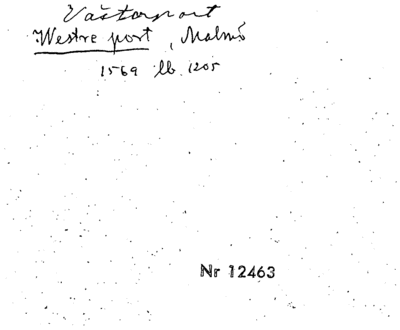 Västerport
Westre port, Malmö
1569 lb 1205
Nr 12463